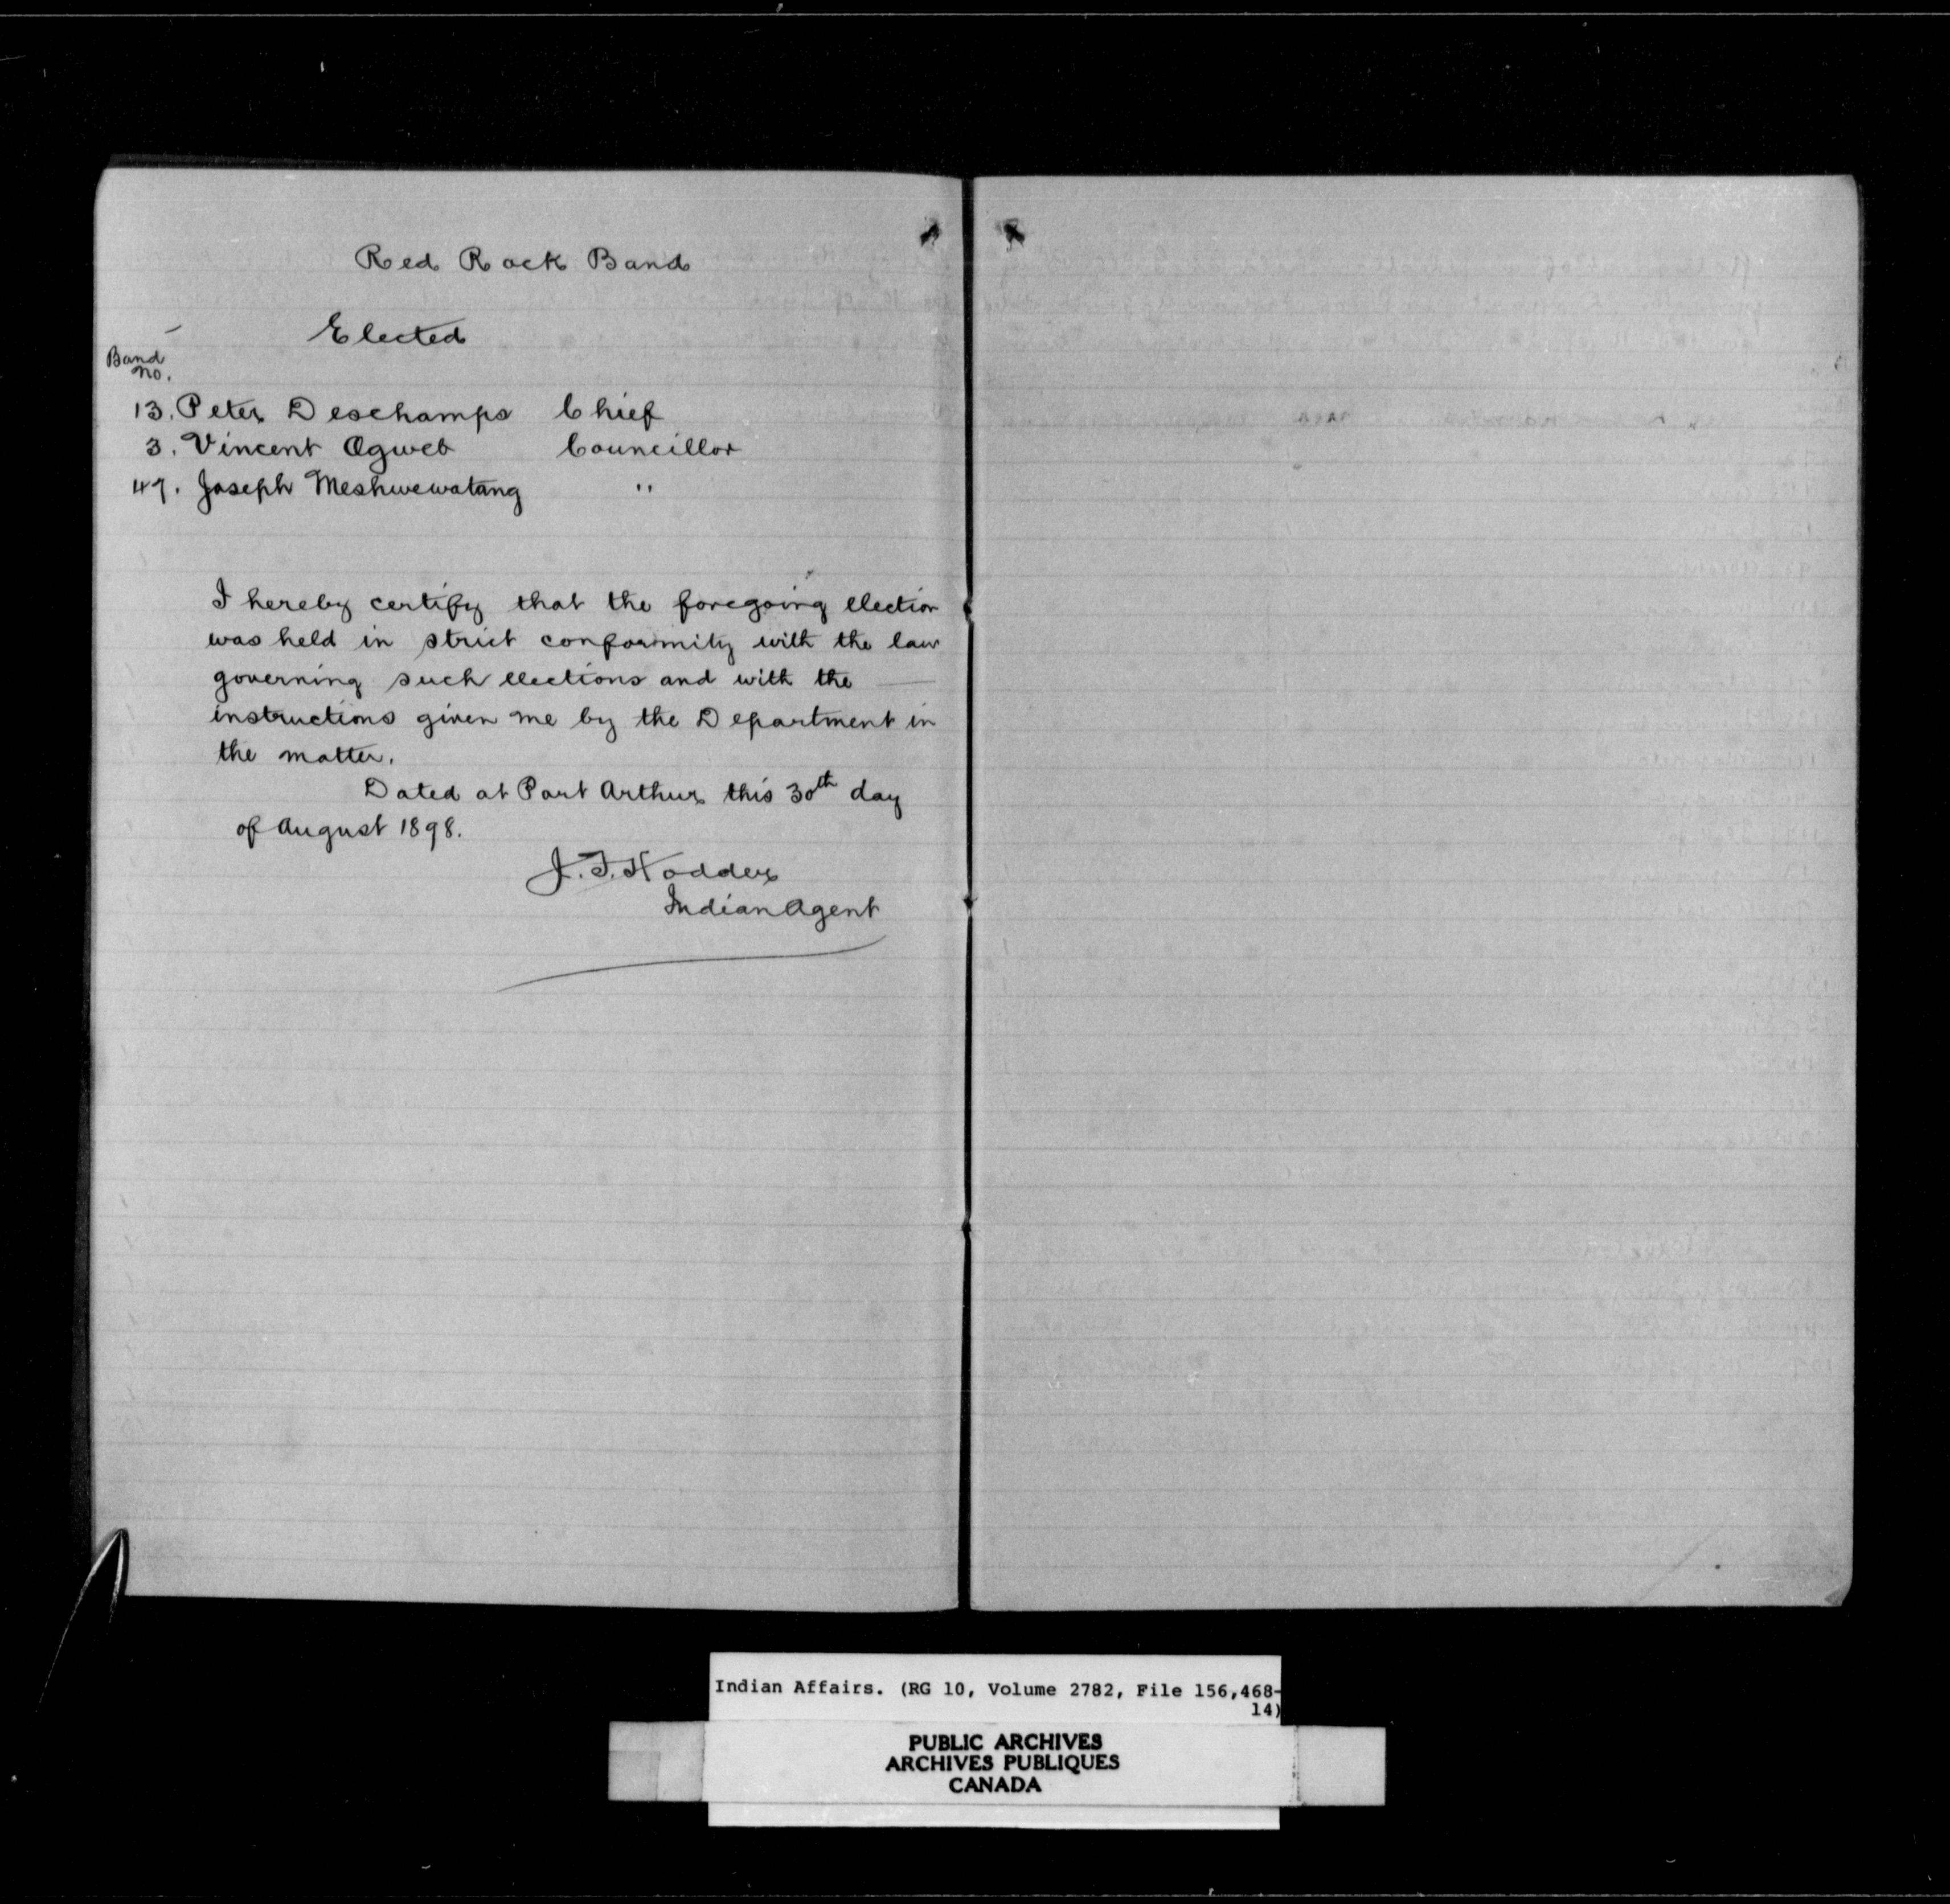 Red Rock Band
Elected
Band
No.
13. Peter Deschamps Chief
3. Vincent Ogweb Councillor
47. Joseph Meshwewatang "
I hereby certify that the foregoing election
was held in strict conformity with the law
governing such elections and with the
instructions given me by the Department in
the matter.
Dated at Port Arthur this 30th day
of August 1898.
J. F. Hodder
Indian Agent
Indian Affairs. (RG 10, Volume 2782, File 156,468-
14)
PUBLIC ARCHIVES
ARCHIVES PUBLIQUES
CANADA